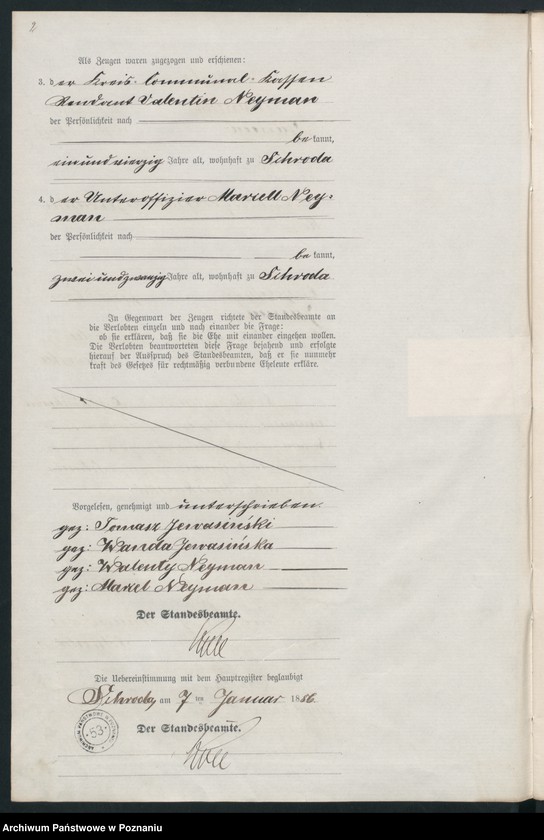 2
Als Zeugen waren zugezogen und erschienen:
3. der Kreis-Communal-Kassen
Rendant Valentin Neyman
der Persönlichkeit nach
bekannt,
einundvierzig Jahre alt, wohnhaft zu Schroda
4. der Unteroffizier Marzell Ney-
man
der Persönlichkeit nach
bekannt,
zweiundzwanzig Jahre alt, wohnhaft zu Schroda
In Gegenwart der Zeugen richtete der Standesbeamte an
die Verlobten einzeln und nach einander die Frage:
ob sie erklären, daß sie die Ehe mit einander eingehen wollen.
Die Verlobten beantworteten diese Frage bejahend und erfolgte
hierauf der Ausspruch des Standesbeamten, daß er sie nunmehr
kraft des Gesetzes für rechtmäßig verbundene Eheleute erkläre.
Vorgelesen, genehmigt und unterschrieben.
gez: Tomasz Jerwasiński
gez: Wanda Jerwasińska
gez: Walenty Neyman
gez: Marcel Neyman
Der Standesbeamte.
Die Uebereinstimmung mit dem Hauptregister beglaubigt
Schroda, am 7 ten Januar 1886.
Der Standesbeamte.
53
Archiwum Państwowe w Poznaniu